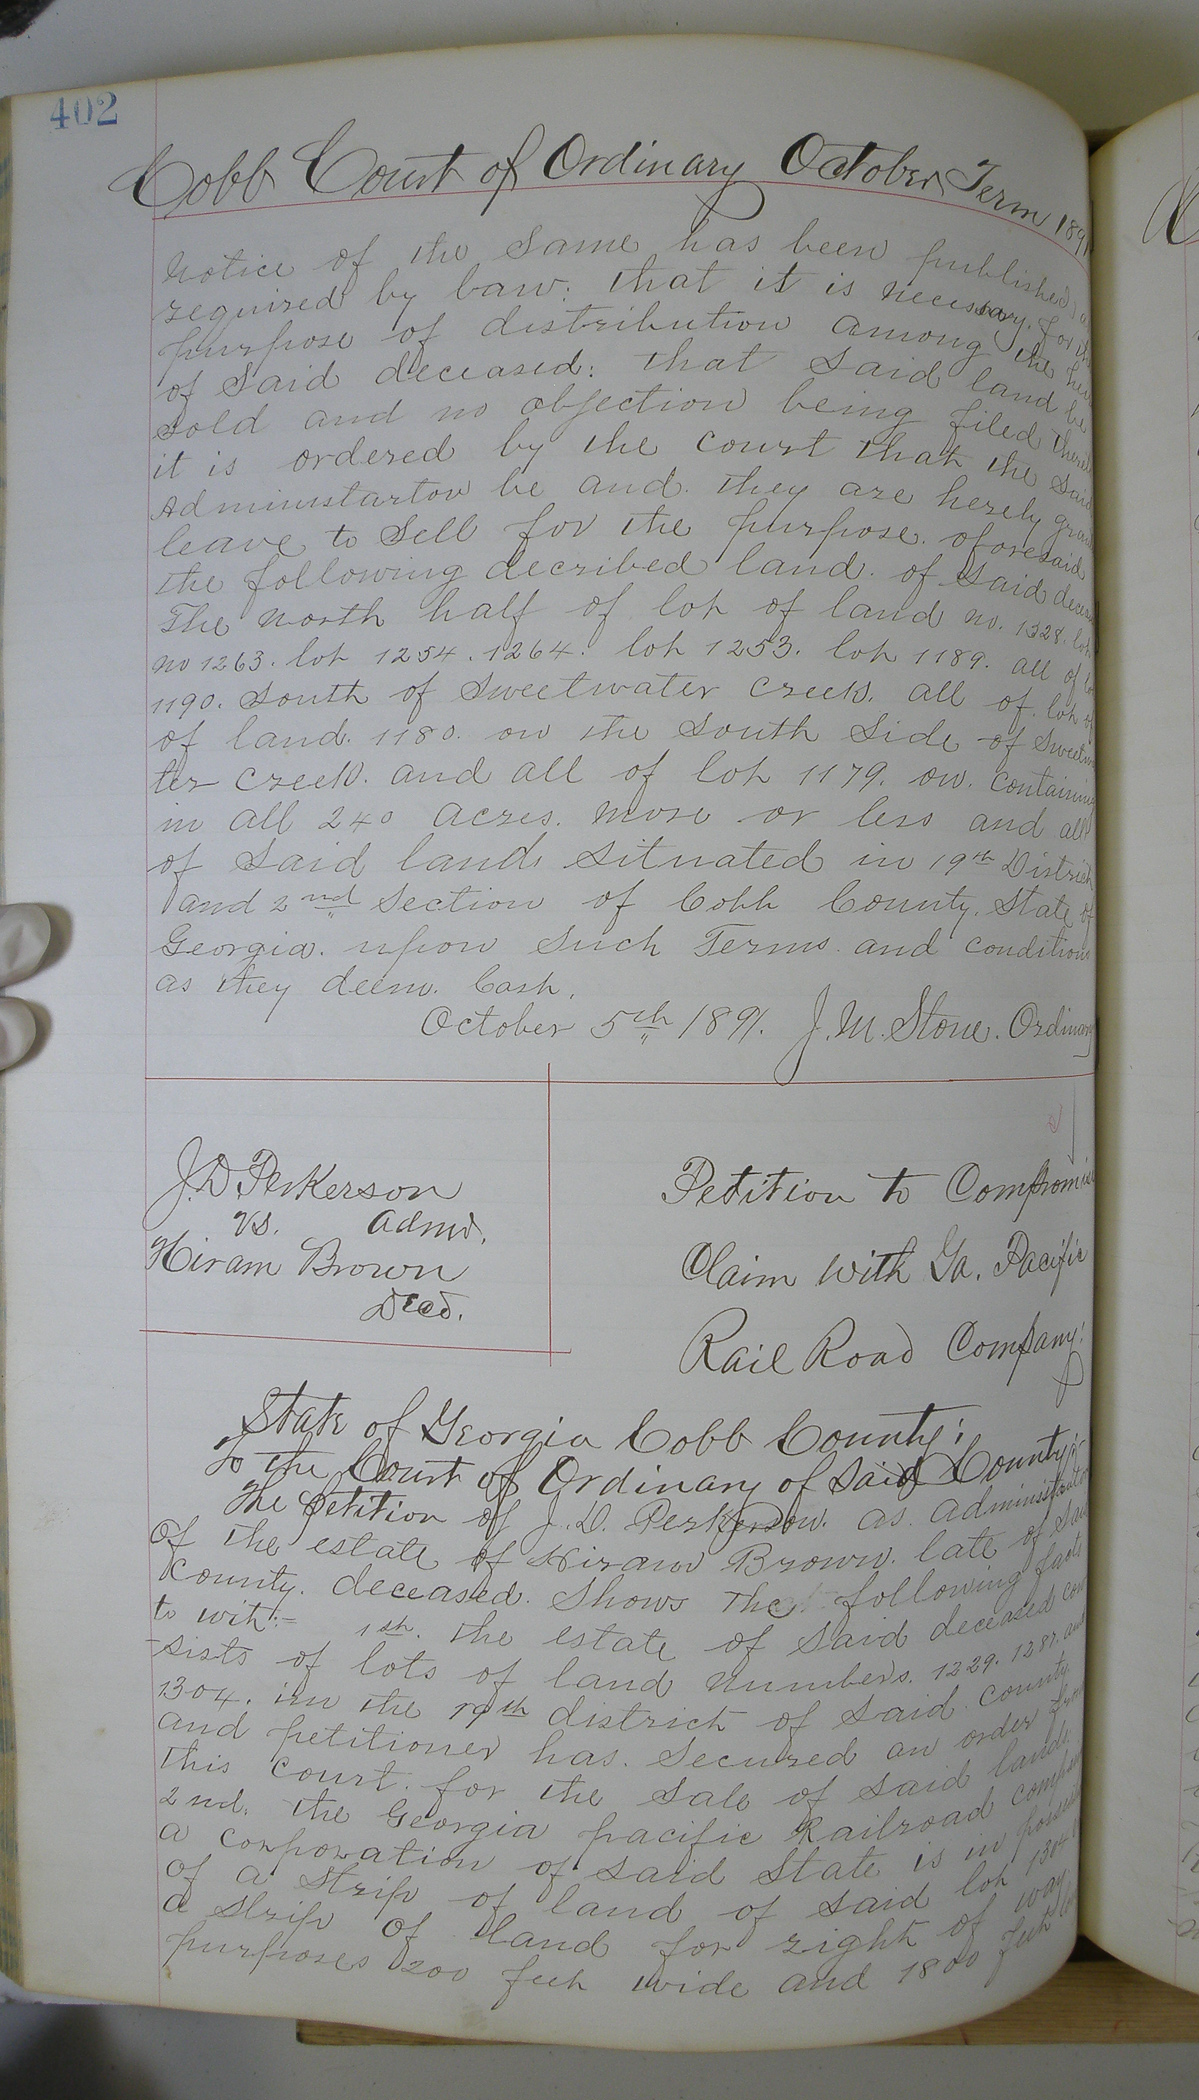 402
Cobb Court of Ordinary October Term 1891
Notice of the Same has been published
required by law: that it is necessary. for the
purpose of distribution among the heirs
of Said deceased: that Said land be
Sold and no objection being filed thereto
it is ordered by the court that the Said
Administartor be and. they are hereby
leave to Sell for the purpose. oforesaid
the following decribed land. of Said
The North half of lot of land no. 1328. lot
no 1263. lot 1254. 1264. lot 1253. lot 1189. all of lot
1190. South of Sweetwater Creek. all of. lot of
of land. 1180. on the South Side of Sweetwa
ter Creek. and all of lot 1179. on. Containing
in all 240 Acres. more or less and all
of Said land Situated in 19th District
and 2nd Section of Cobb County. State of
Georgia. upon Such Terms. and conditions
as they deem. Cash.
October 5th 1891. J. M. Stone. Ordinary
J. D. Perkerson
vs. Admr.
Hiram Brown
Decd.
Petition to Compromise
Claim with Ga. Pacific
Rail Road Company:
State of Georgia Cobb County:
To the Court of Ordinary of Said County:
The petition of J. D. Perkerson. as administrator
Of the estate of Hiram Brown. late of Said
County. deceased. Shows the following facts
to wit:- 1st. the estate of Said deceased con
-sists of lots of land Numbers. 1229. 1287. and
1304. in the 19th district of Said County
and petitioner has. Secured an order from
this Court. for the Sale of Said lands.
2nd. the Georgia pacific Railroad company
a corporation of said State is in possession
of a Strip of land of said lot 1304
a Strip of land for right of way
purposes 200 feet wide and 1800 feet